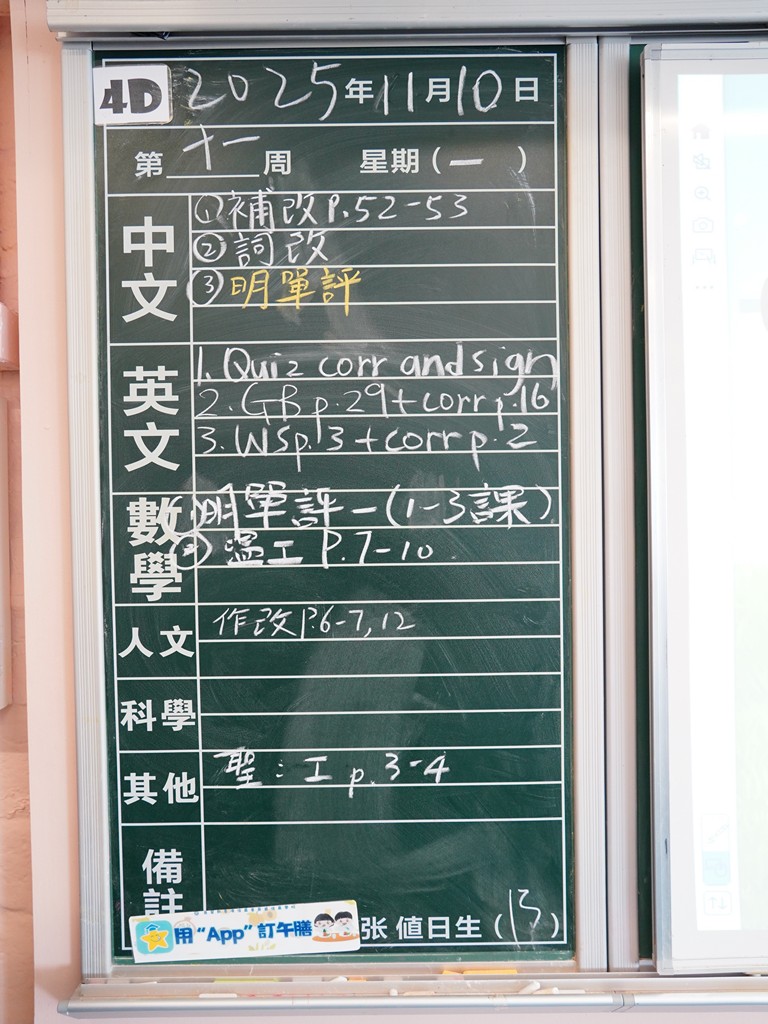 4D 2025年11月10日
第十一周 星期(一)
中文
①補改P.52-53
②詞改
③明單評
英文
1. Quiz corr and sign
2. GB p.29+corr p.16
3. WS p.3 +corr p.2
數學
①明單評-(1-3課)
② 溫工 P.7-10
人文
作改P.6-7,12
科學
其他
聖:工 p.3-4
備註
用“App”訂午膳
张 值日生(13)